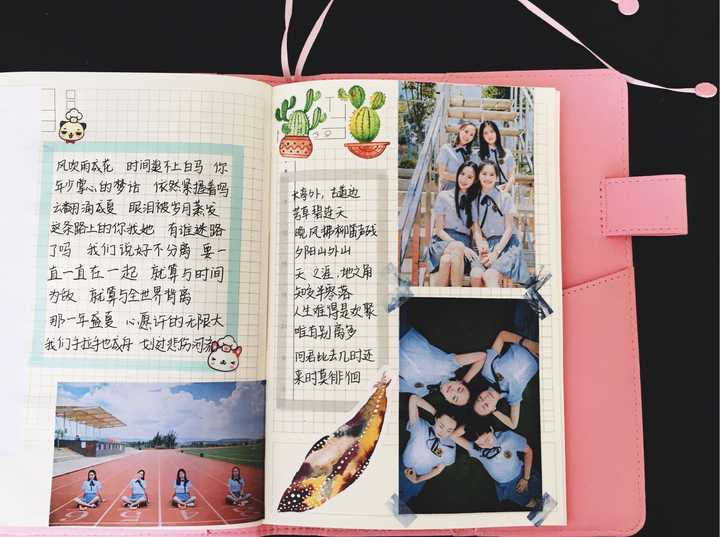 风吹雨成花 时间追不上白马 你
年少掌心的梦话 依然紧握着吗
云翻涌成夏 眼泪被岁月蒸发
这条路上的你我她 有谁迷路
了吗 我们说好不分离 要一
直一直在一起 就算与时间
为敌 就算与全世界背离
那一年盛夏 心愿许的无限大
我们手拉手也成舟 划过悲伤河流
长亭外，古道边
芳草碧连天
晚风拂柳笛声残
夕阳山外山
天之涯，地之角
知交半零落
人生难得是欢聚
唯有别离多
问君此去几时还
来时莫徘徊
6 5 4 3